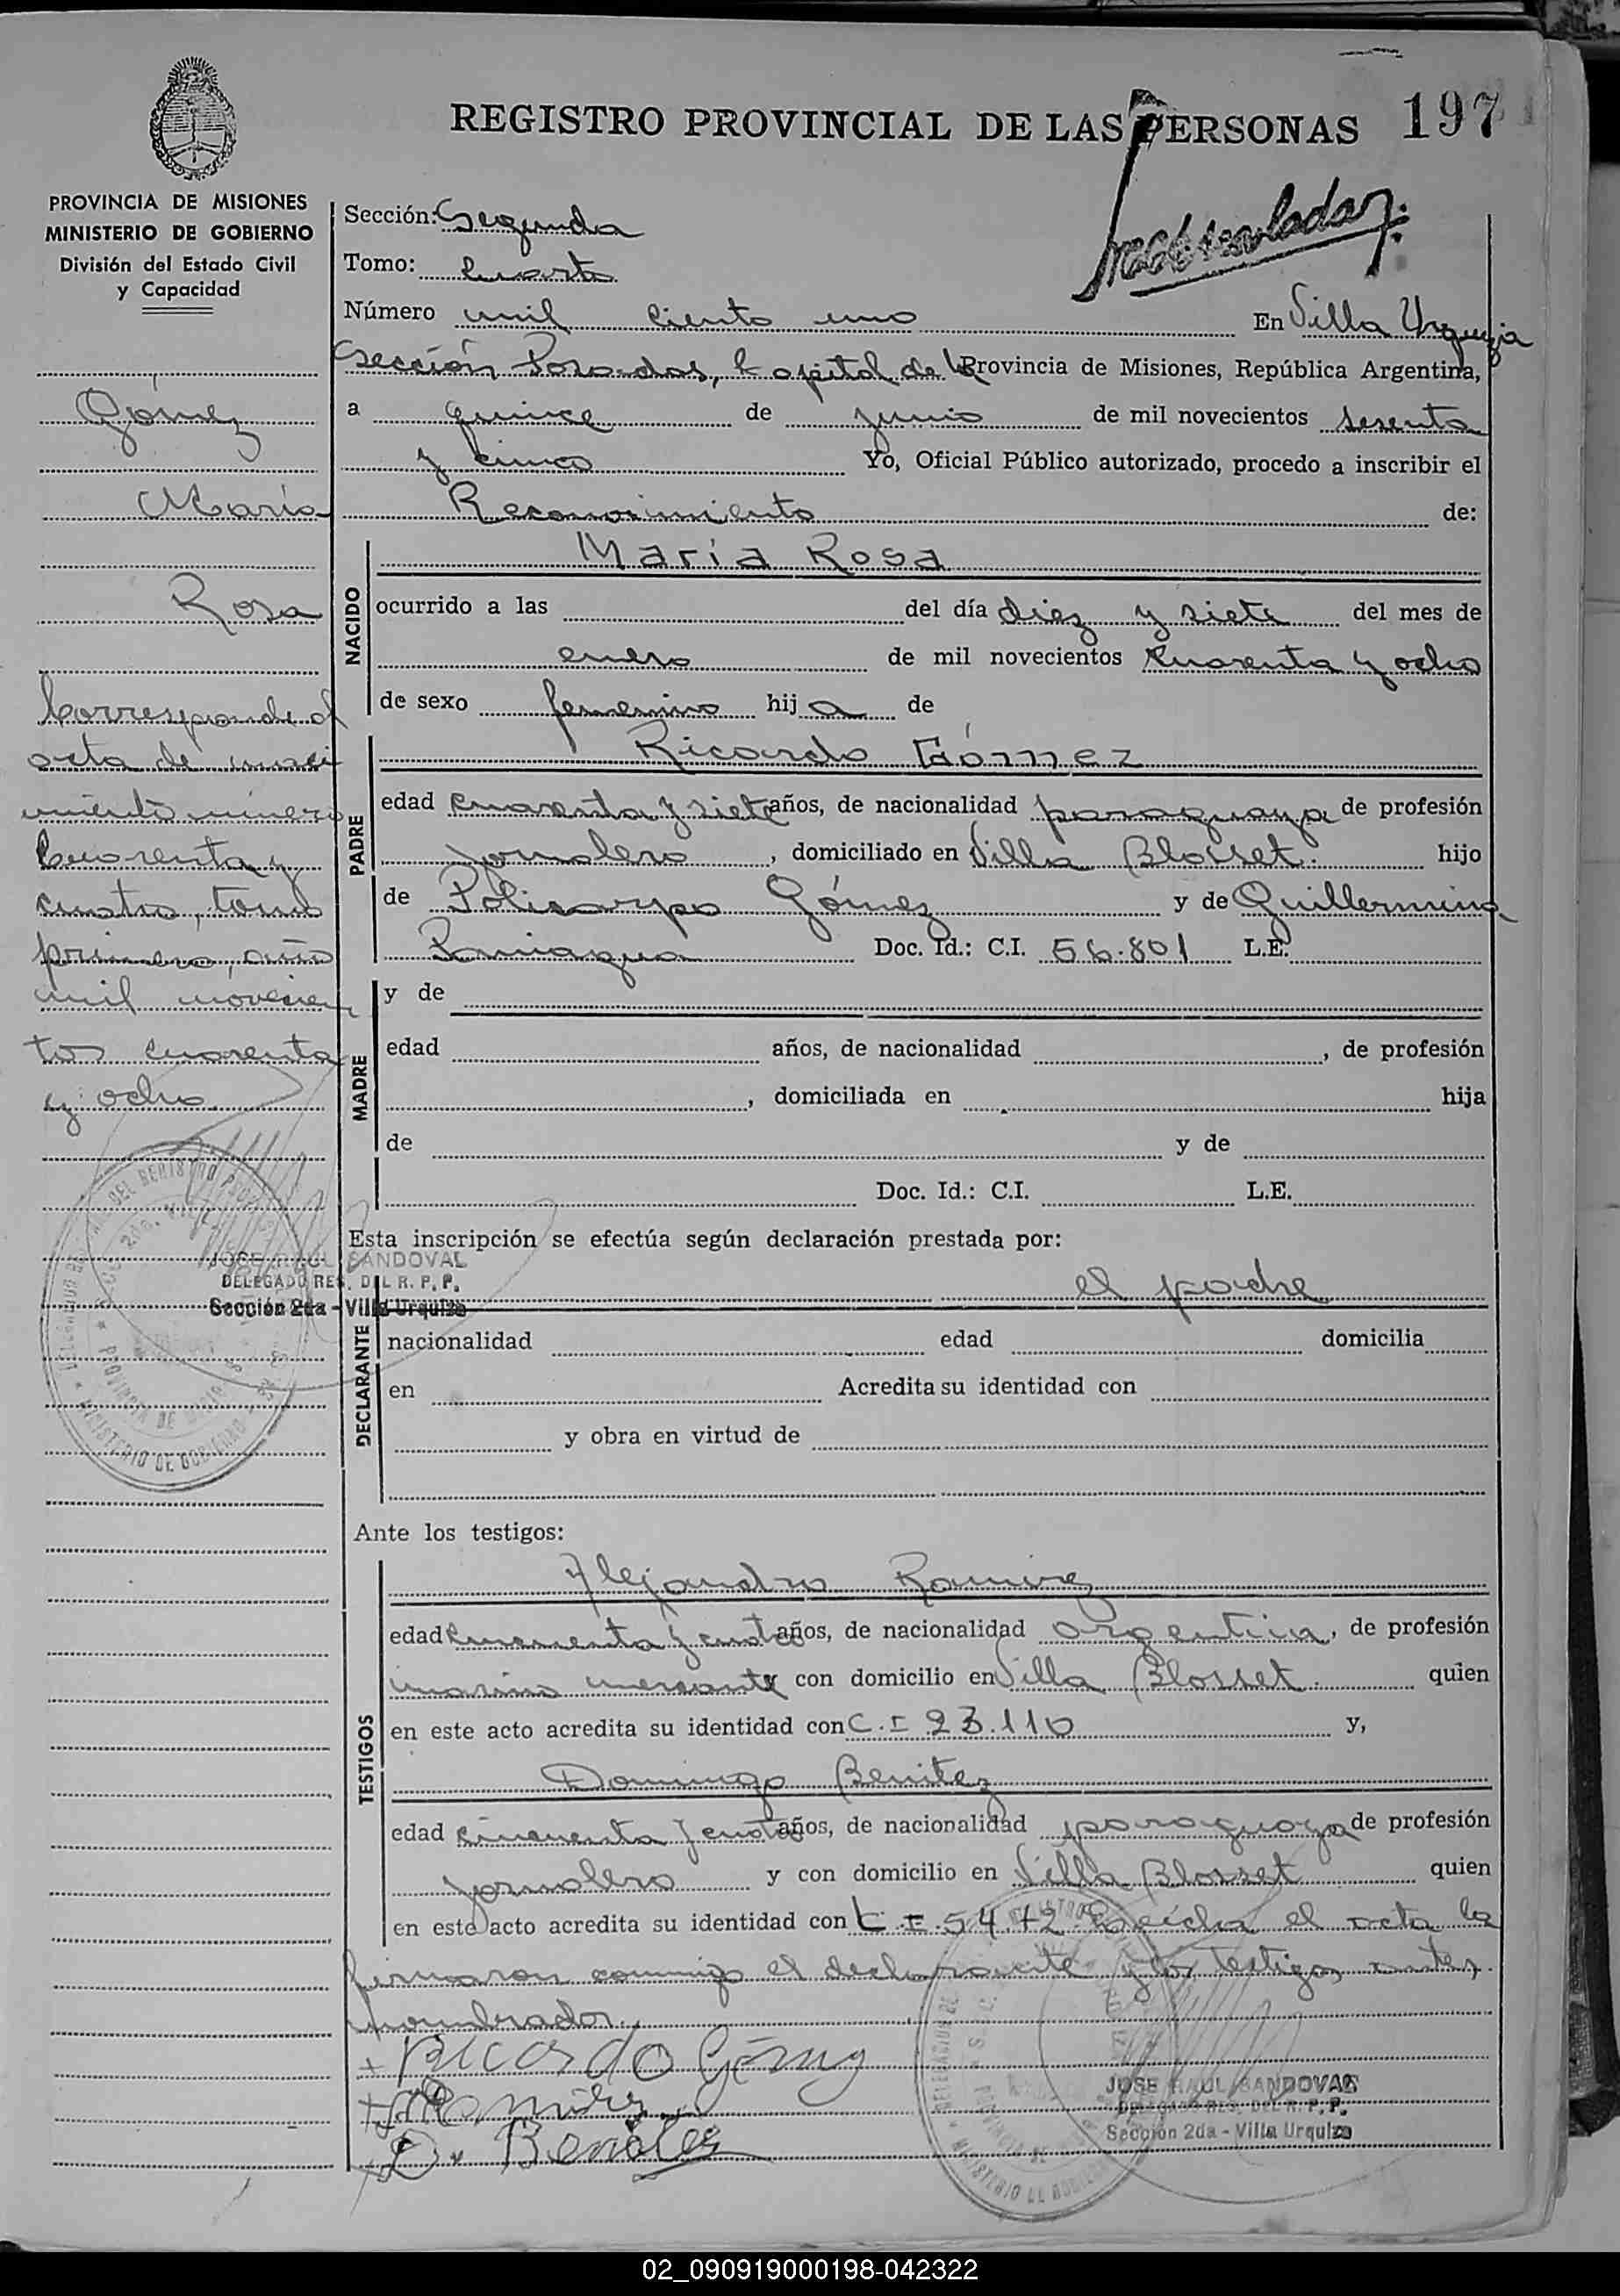 REGISTRO PROVINCIAL DE LAS PERSONAS 197
PROVINCIA DE MISIONES
MINISTERIO DE GOBIERNO
División del Estado Civil
y Capacidad
Gómez
María
Rosa
Corresponde al
acta de naci
miento número
Cuarenta y
cuatro, tomo
primero, año
mil novecien
tos cuarenta
y ocho
JOSE RAUL SANDOVAL
DELEGADO RES. DEL R. P. P.
Sección 2da - Villa Urquiza
Sección: Segunda
Tomo: Cuarto
Número mil ciento uno En Villa Urquiza
Sección Posadas, Capital de la Provincia de Misiones, República Argentina,
a quince de junio de mil novecientos sesenta
y cinco Yo, Oficial Público autorizado, procedo a inscribir el
Reconocimiento de:
NACIDO
María Rosa
ocurrido a las del día diez y siete del mes de
enero de mil novecientos cuarenta y ocho
de sexo femenino hija de
PADRE
Ricardo Gómez
edad cuarenta y siete años, de nacionalidad paraguaya de profesión
jornalero, domiciliado en Villa Blosset. hijo
de Policarpo Gómez y de Guillermina
Paniagua Doc. Id.: C.I. 56.801 L.E.
MADRE
y de
edad años, de nacionalidad , de profesión
, domiciliada en hija
de y de
Doc. Id.: C.I. L.E.
Esta inscripción se efectúa según declaración prestada por:
el padre
DECLARANTE
nacionalidad edad domicilia
en Acredita su identidad con
y obra en virtud de
Ante los testigos:
TESTIGOS
Alejandro Ramirez
edad y cuatro años, de nacionalidad argentina, de profesión
marino mercante con domicilio en Villa Blosset. quien
en este acto acredita su identidad con C.I 23.110 y,
Domingo Benitez
edad cincuenta y cuatro años, de nacionalidad paraguaya de profesión
jornalero y con domicilio en Villa Blosset quien
en este acto acredita su identidad con el acta la
firmaron conmigo el declarante y los testigos antes
nombrados.
Ricardo Gómez
Ramirez
D. Benitez
JOSE RAUL SANDOVAL
DELEGADO RES. DEL R. P. P.
Sección 2da - Villa Urquiza
02_090919000198-042322